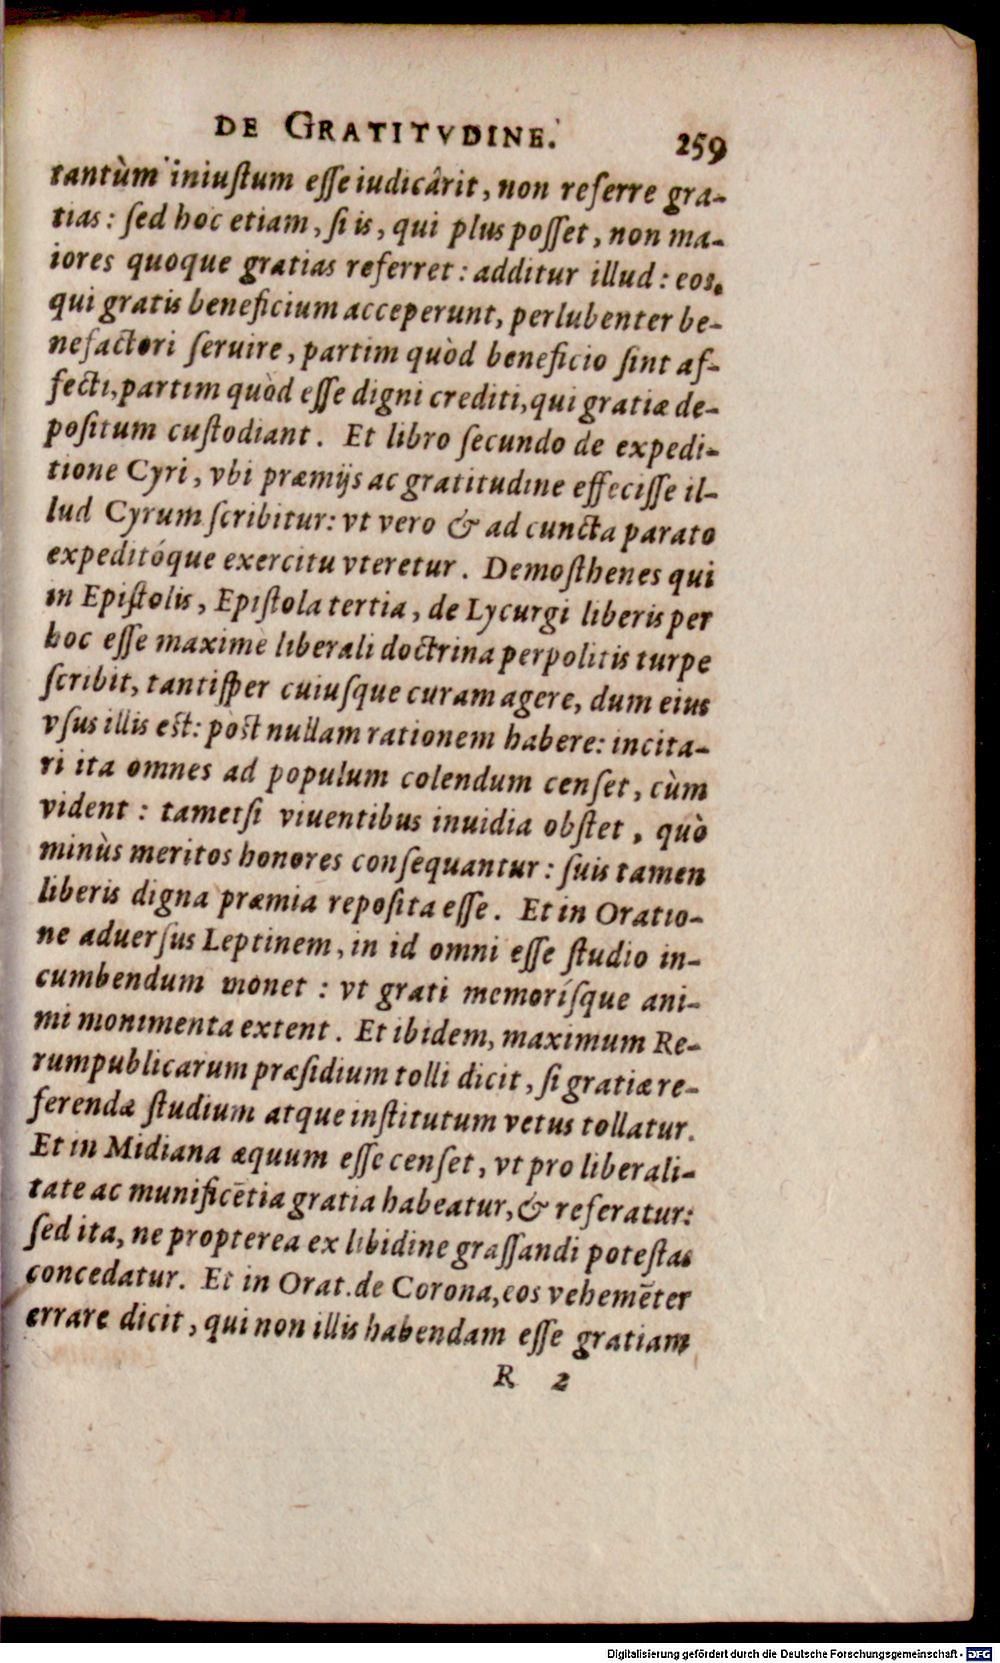 DE GRATITVDINE. 259
tantùm iniuſtum eſſe iudicârit, non referre gra-
tias: ſed hoc etiam, ſi is, qui plus poſſet, non ma-
iores quoque gratias referret: additur illud: eos,
qui gratis beneficium acceperunt, perlubenter be-
nefactori ſeruire, partim quòd beneficio ſint af-
fecti, partim quòd eſſe digni crediti, qui gratiæ de-
poſitum cuſtodiant. Et libro ſecundo de expedi-
tione Cyri, vbi præmijs ac gratitudine effeciſſe il-
lud Cyrum ſcribitur: vt vero & ad cuncta parato
expeditóque exercitu vteretur. Demoſthenes qui
in Epiſtolis, Epiſtola tertia, de Lycurgi liberis per
hoc eſſe maxime liberali doctrina perpolitis turpe
ſcribit, tantiſper cuiuſque curam agere, dum eius
vſus illis est: pòst nullam rationem habere: incita-
ri ita omnes ad populum colendum cenſet, cùm
vident: tametſi viuentibus inuidia obſtet, quò
minùs meritos honores conſequantur: ſuis tamen
liberis digna præmia repoſita eſſe. Et in Oratio-
ne aduerſus Leptinem, in id omni eſſe ſtudio in-
cumbendum monet: vt grati memoríſque ani-
mi monimenta extent. Et ibidem, maximum Re-
rumpublicarum præſidium tolli dicit, ſi gratiæ re-
ferendæ ſtudium atque inſtitutum vetus tollatur.
Et in Midiana æquum eſſe cenſet, vt pro liberali-
tate ac munificētia gratia habeatur, & referatur:
ſed ita, ne propterea ex libidine graſſandi poteſtas
concedatur. Et in Orat. de Corona, eos vehemēter
errare dicit, qui non illis habendam eſſe gratiam
R 2
Digitalisierung gefördert durch die Deutsche Forschungsgemeinschaft - DFG